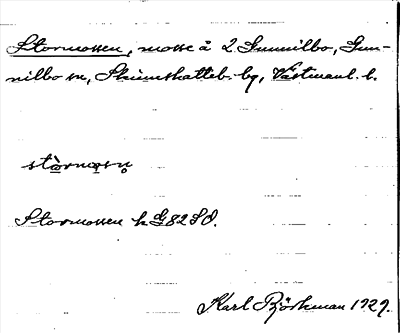 Stormossen, mosse å 2 Gunnilbo, Gun-
nilbo sn, Skinnskatteb. bg, Västmanl. l.
stòrmọsn̥
Stormossen k G 82 SO.
Karl Björkman 1929.